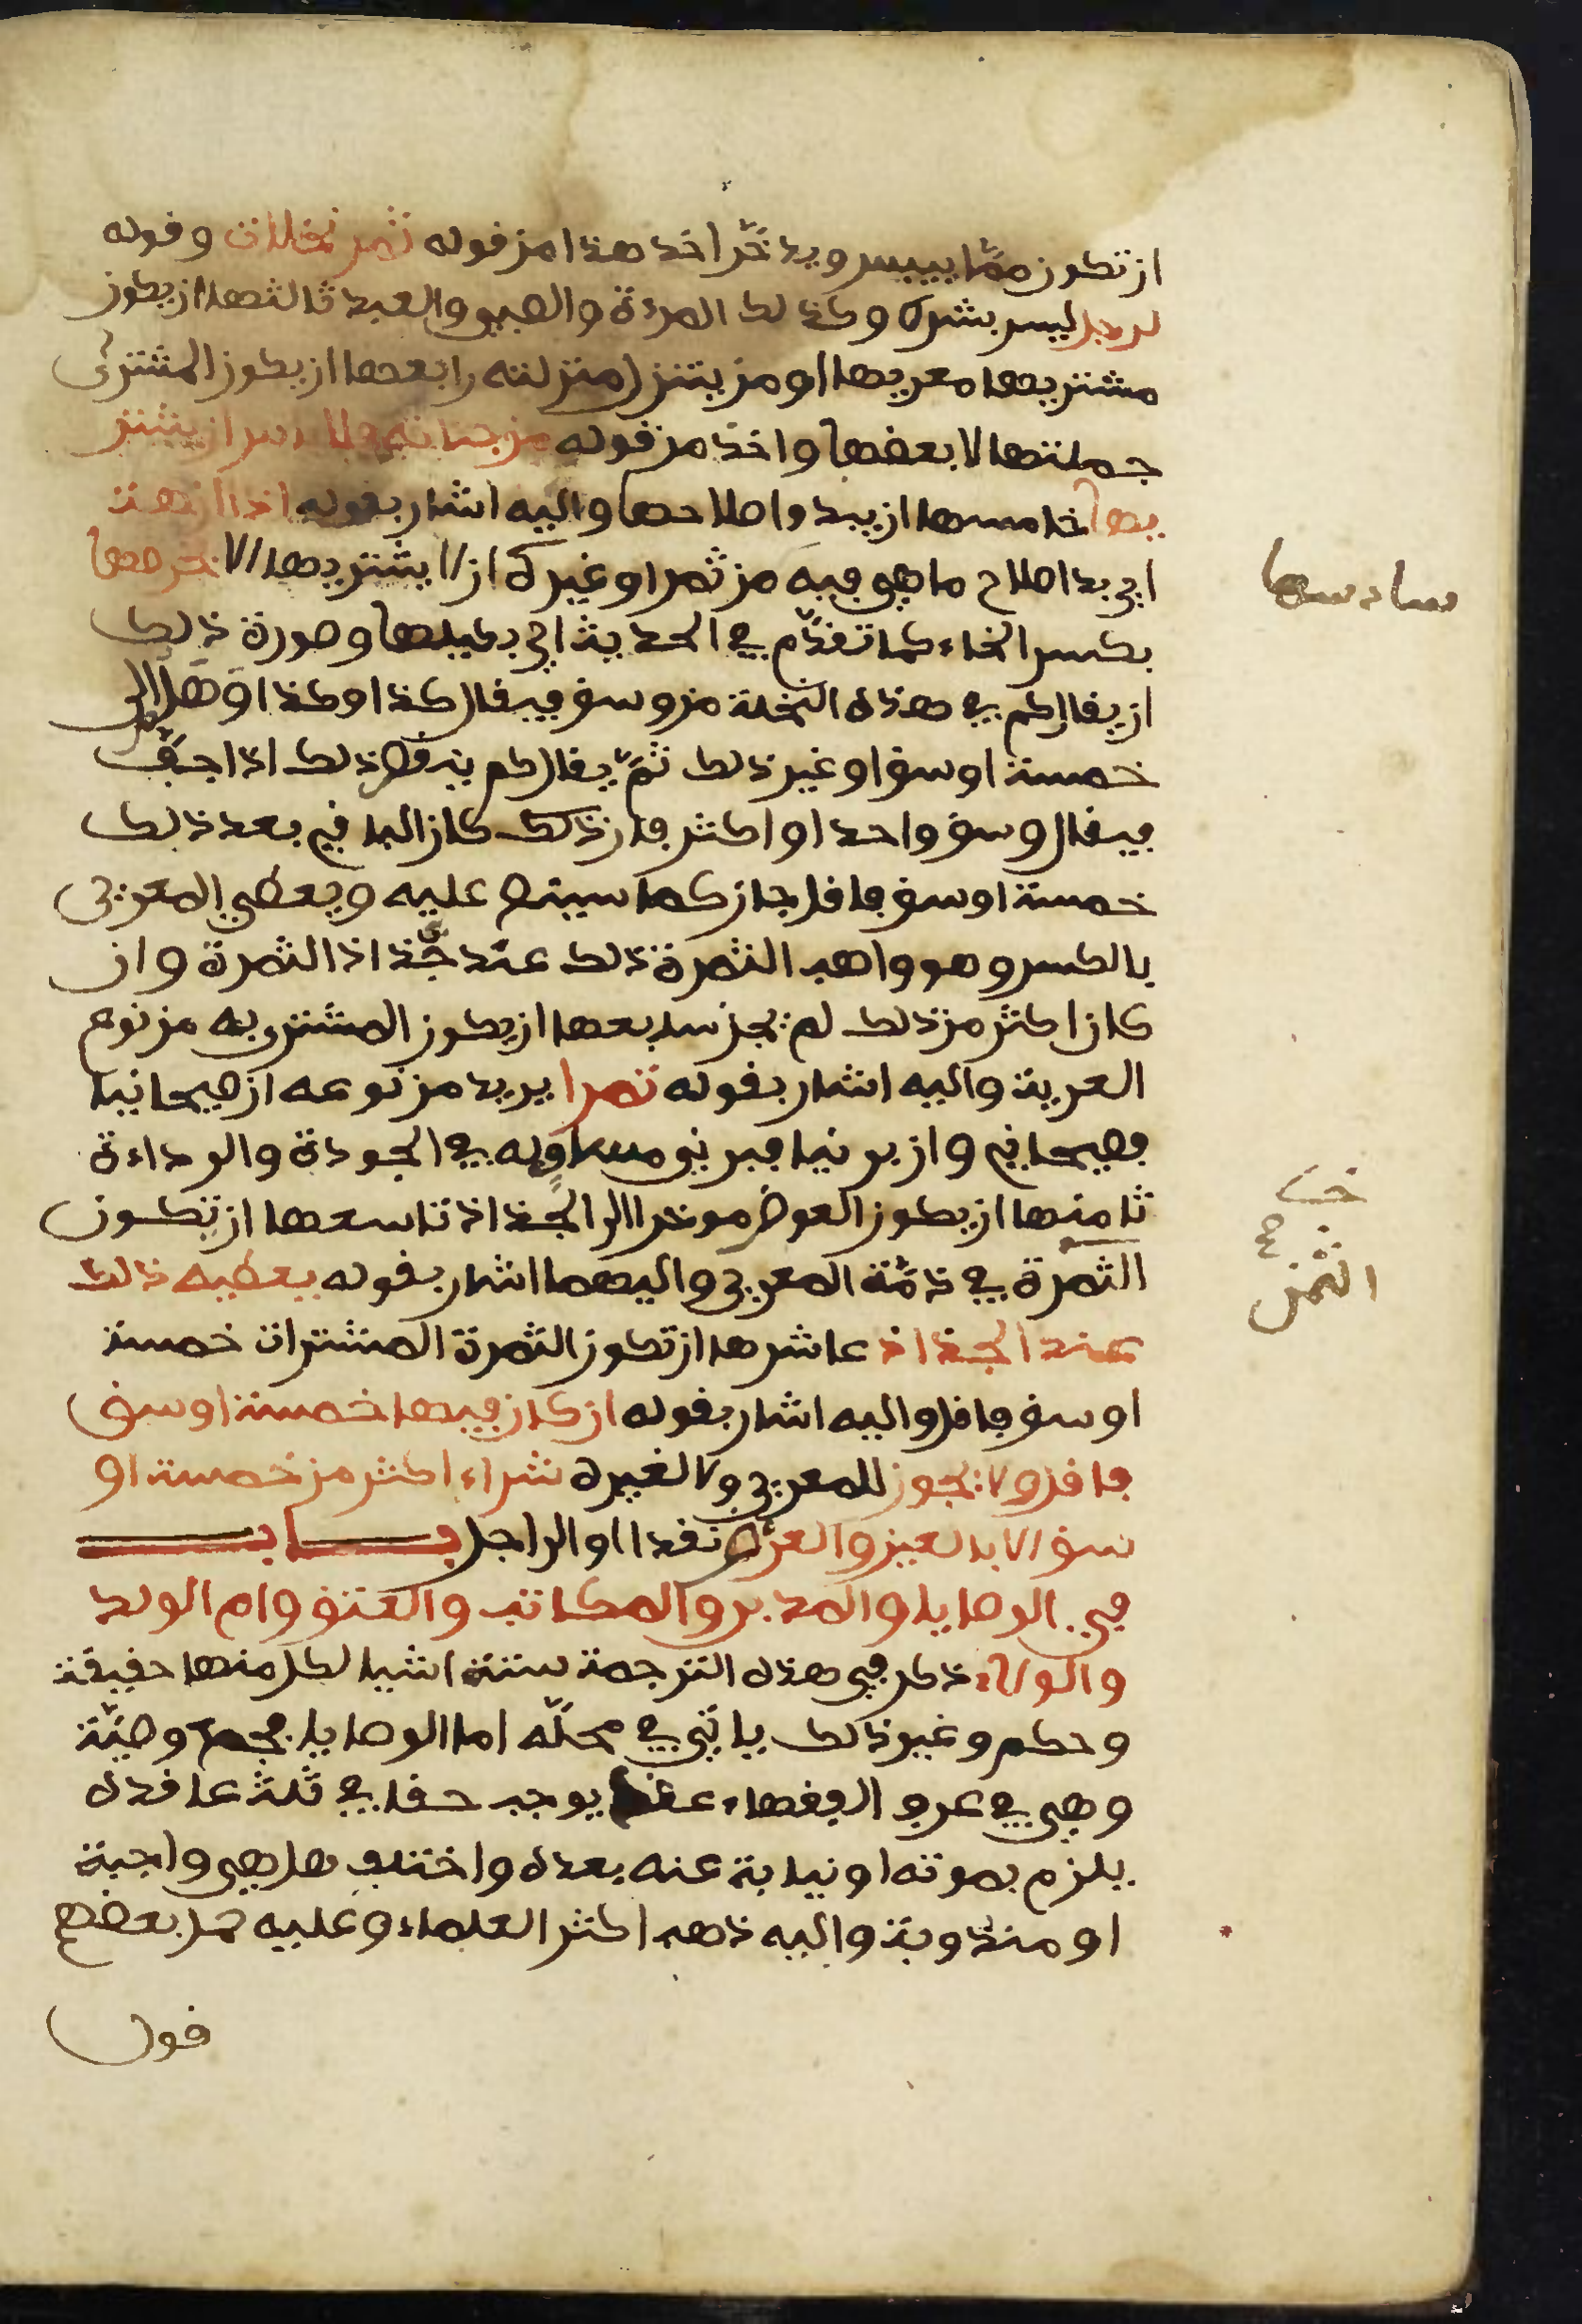 ان تكون مما ييبس ويدخّر اخذ هذا من قوله ثمر نخلات وقوله
لرجل ليس بشرط وكذلك المرءة والصبي والعبد ثالثها ان يكون
مشتريها معريها او من يتنزل منزلته رابعها ان يكون المشترى
جملتها لا بعضها واخذ من قوله من جنانه فلا باس ان يشتر
يها خامسها ان يبدوا صلاحها واليه اشار بقوله اذا ازهت
سادسها
اي بدا صلاح ما هي فيه من ثمر او غيره ان لا يشتريها الا بخرصها
بكسر الخاء كما تقدّم في الحديث اي بكيلها وصورة ذلك
ان يقال كم في هذه النخلة من وسق فيقال كذا وكذا او هل الى
خمسة اوسق او غير ذلك ثمّ يقال كم ينقص ذلك اذا جفّ
فيقال وسق واحد او اكثر فان ذلك كان الباقي بعد ذلك
خمسة اوسق فاقل جاز كما سينص عليه ويعطي المعري
بالكسر وهو واهب الثمرة ذلك عند جذاذ الثمرة وان
كان اكثر من ذلك لم يجز سابعها ان يكون المشترى به من نوع
العرية واليه اشار بقوله تمرا يريد من نوعه ان صيحانيا
فصيحاني وان برنيا فبرني مساويه في الجودة والرداءة
ثامنها ان يكون العوض موخرا الى الجذاذ تاسعها ان تكون
الثمن
الثمرة في ذمّة المعري واليهما اشار بقوله يعطيه ذلك
عند الجذاذ عاشرها ان تكون الثمرة المشترات خمسة
اوسق فاقل واليه اشار بقوله ان كان فيها خمسة اوسق
فاقل ولا يجوز للمعري ولا لغيره شراء اكثر من خمسة او
سق الا بالعين والعرض نقدا او الى اجل باب
في الوصايا والمدبر والمكاتب والعتق وام الولد
والولاء ذكر في هذه الترجمة ستة اشيا لكل منها حقيقة
وحكم وغير ذلك ياتي في محلّه اما الوصايا فجمع وصيّة
وهي في عرف الفقهاء عقد يوجب حقا في ثلث عاقده
يلزم بموته او نيابة عنه بعده واختلف هل هي واجبة
او مندوبة واليه ذهب اكثر العلماء وعليه حمل بعضهم
قول